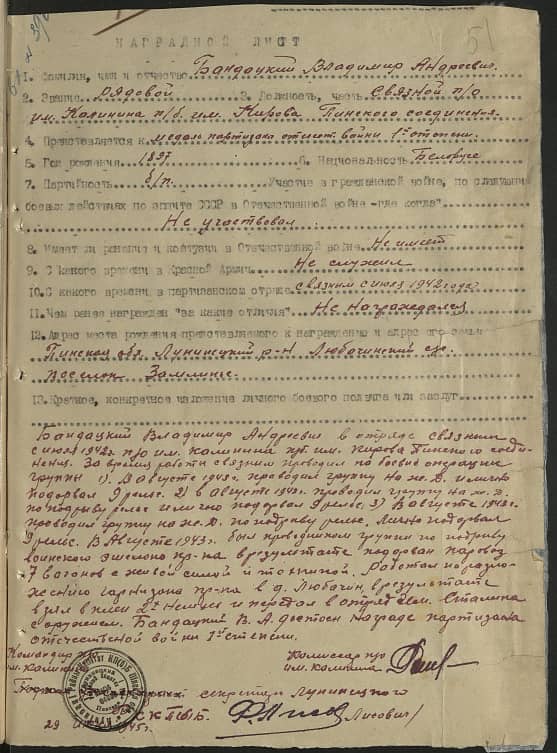 51
НАГРАДНОЙ ЛИСТ
1. Фамилия, имя и отчество Бандацкий Владимир Андреевич.
2. Звание рядовой 3. Должность, часть Связной п/о
им. Калинина п/б. им. Кирова Пинского соединения.
4. Представляется к медаль партизана отечест. войны 1й степени.
5. Год рождения 1897 6. Национальность Белорус
7. Партийность б/п. Участие в гражданской войне, по следующим
боевых действиях по защите СССР в Отечественной войне "где когда"
Не участвовал
8. Имеет ли ранения и контузии в Отечественной войне Не имеет
9. С какого времени в Красной Армии Не служил
10. С какого времени в партизанском отряде связным с июля 1942 года
11. Чем ранее награжден "за какие отличия" Не награждался
12. Адрес места рождения представляемого к награждению и адрес его семьи
Пинская обл. Лунинецкий р-н Любачинский с/с.
поселок
13. Краткое, конкретное изложение личного боевого подвига или заслуг
Бандацкий Владимир Андреевич в отряде связным
с июля 1942г. п/о им. Калинина п/б. им. Кирова Пинского соеди-
нения. За время работы связным проводил на боевые операции
группы 1). В августе 1943г. проводил группу на ж.д. и лично
подорвал 9 рельс. 2) в августе 1943г. проводил группу на ж.д.
по подрыву рельс и лично подорвал рельс 3) В августе 1943г.
проводил группу на ж.д. по подрыву рельс. Лично подорвал
рельс. В августе 1943г. был проводником группы по подрыву
воинского эшелона пр-ка в результате подорван паровоз
7 вагонов с живой силой и техникой. Работал по разло-
жению гарнизона пр-ка в д. Любачин, в результате
взял в плен 2х немцев и передал в отряд им. Сталина
с оружием. Бандацкий В.А. достоин награде партизана
отечественной войны 1й степени.
Командир Комиссар п/о
им. Калинина им. Калинина
секретарь Лунинецкого
КП(б)Б. Лисович/
29 1945г.